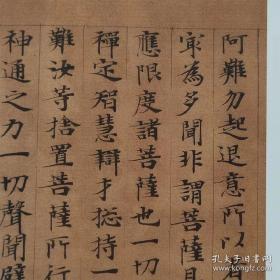 阿難勿起退意所以
㝡為多聞非謂菩薩
應限度諸菩薩也一切
禪定智慧辯才揔持一
難汝等捨置菩薩所行
神通之力一切聲聞辟
孔夫子旧书网